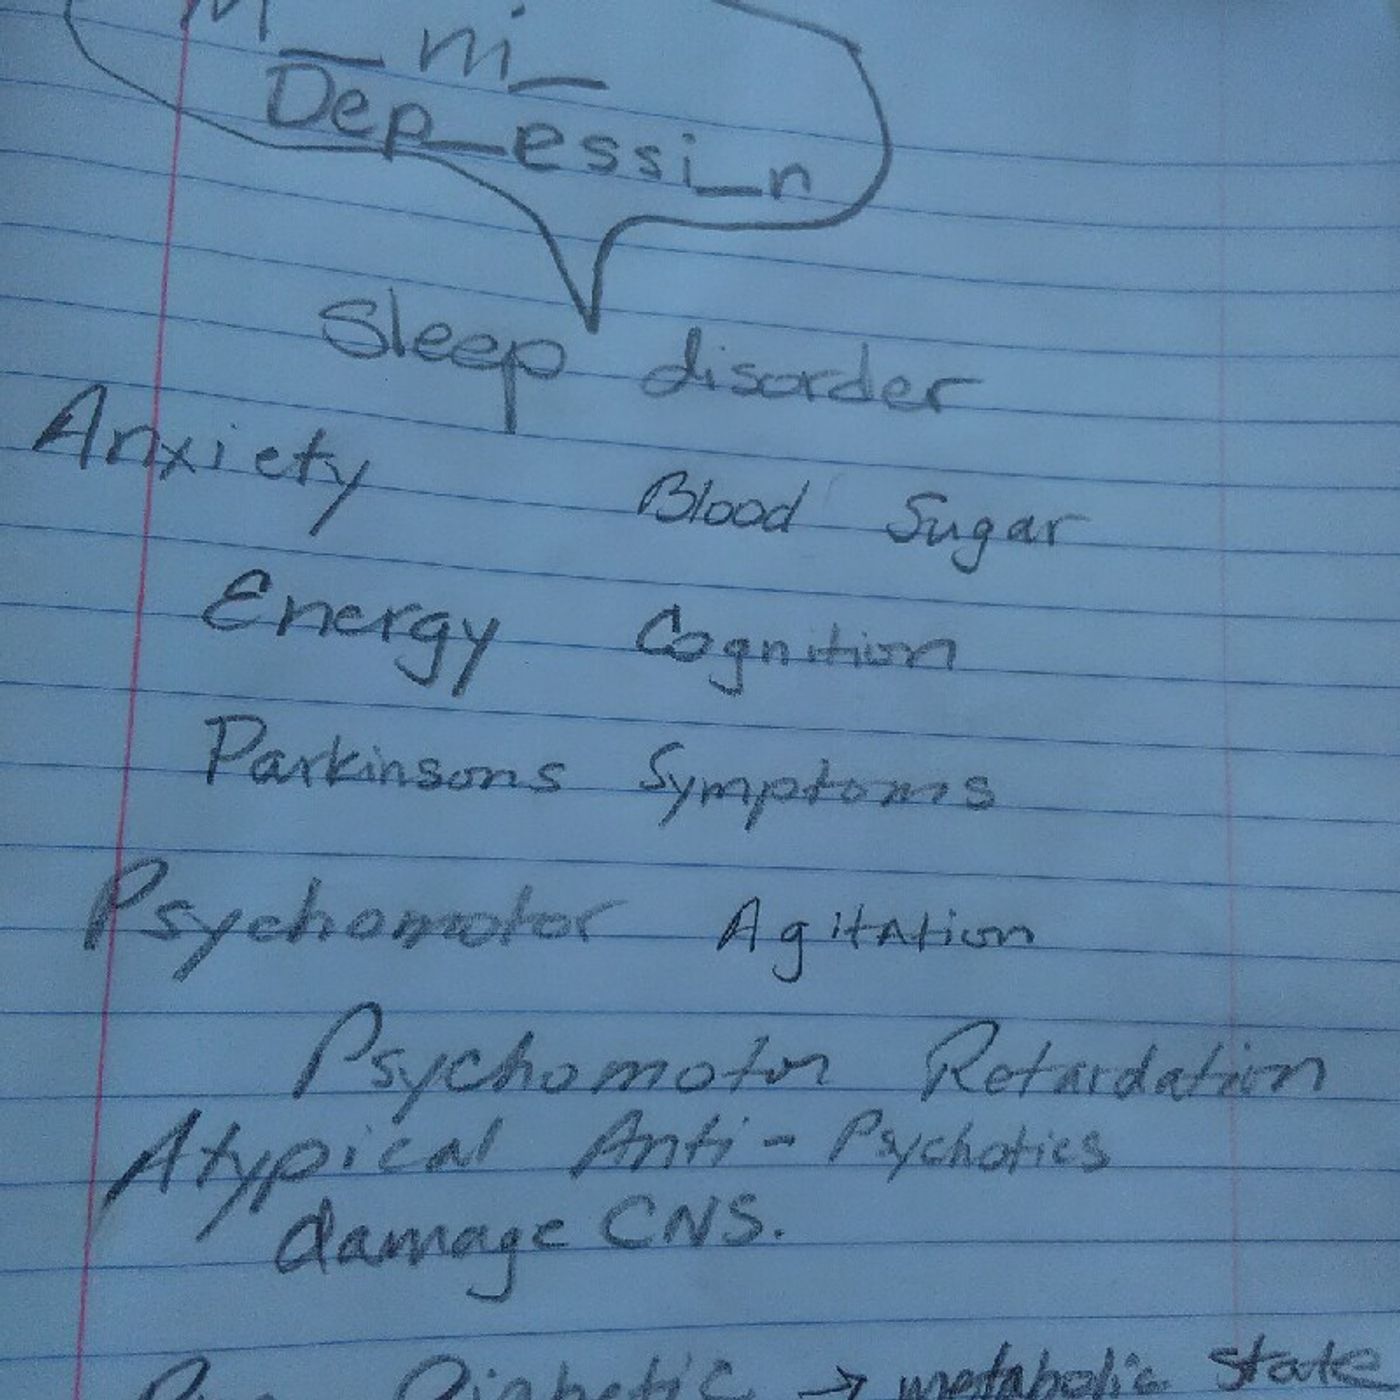 M_ni_
Dep_essi_n
Sleep disorder
Anxiety Blood Sugar
Energy Cognition
Parkinsons Symptoms
Psychomotor Agitation
Psychomotor Retardation
Atypical Anti-Psychotics
damage CNS.
Pre Diabetic → metabolic state